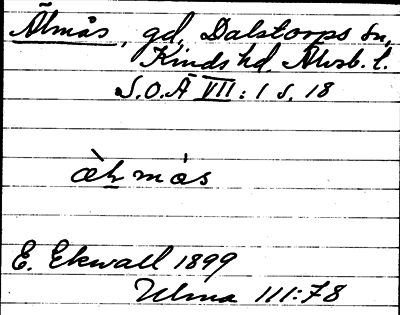 Älmås, gd, Dalstorps sn,
Kinds hd. Älvsb. l.
S.O.Ä VII: 1 s. 18
E. Ekwall 1899
Ulma III:78